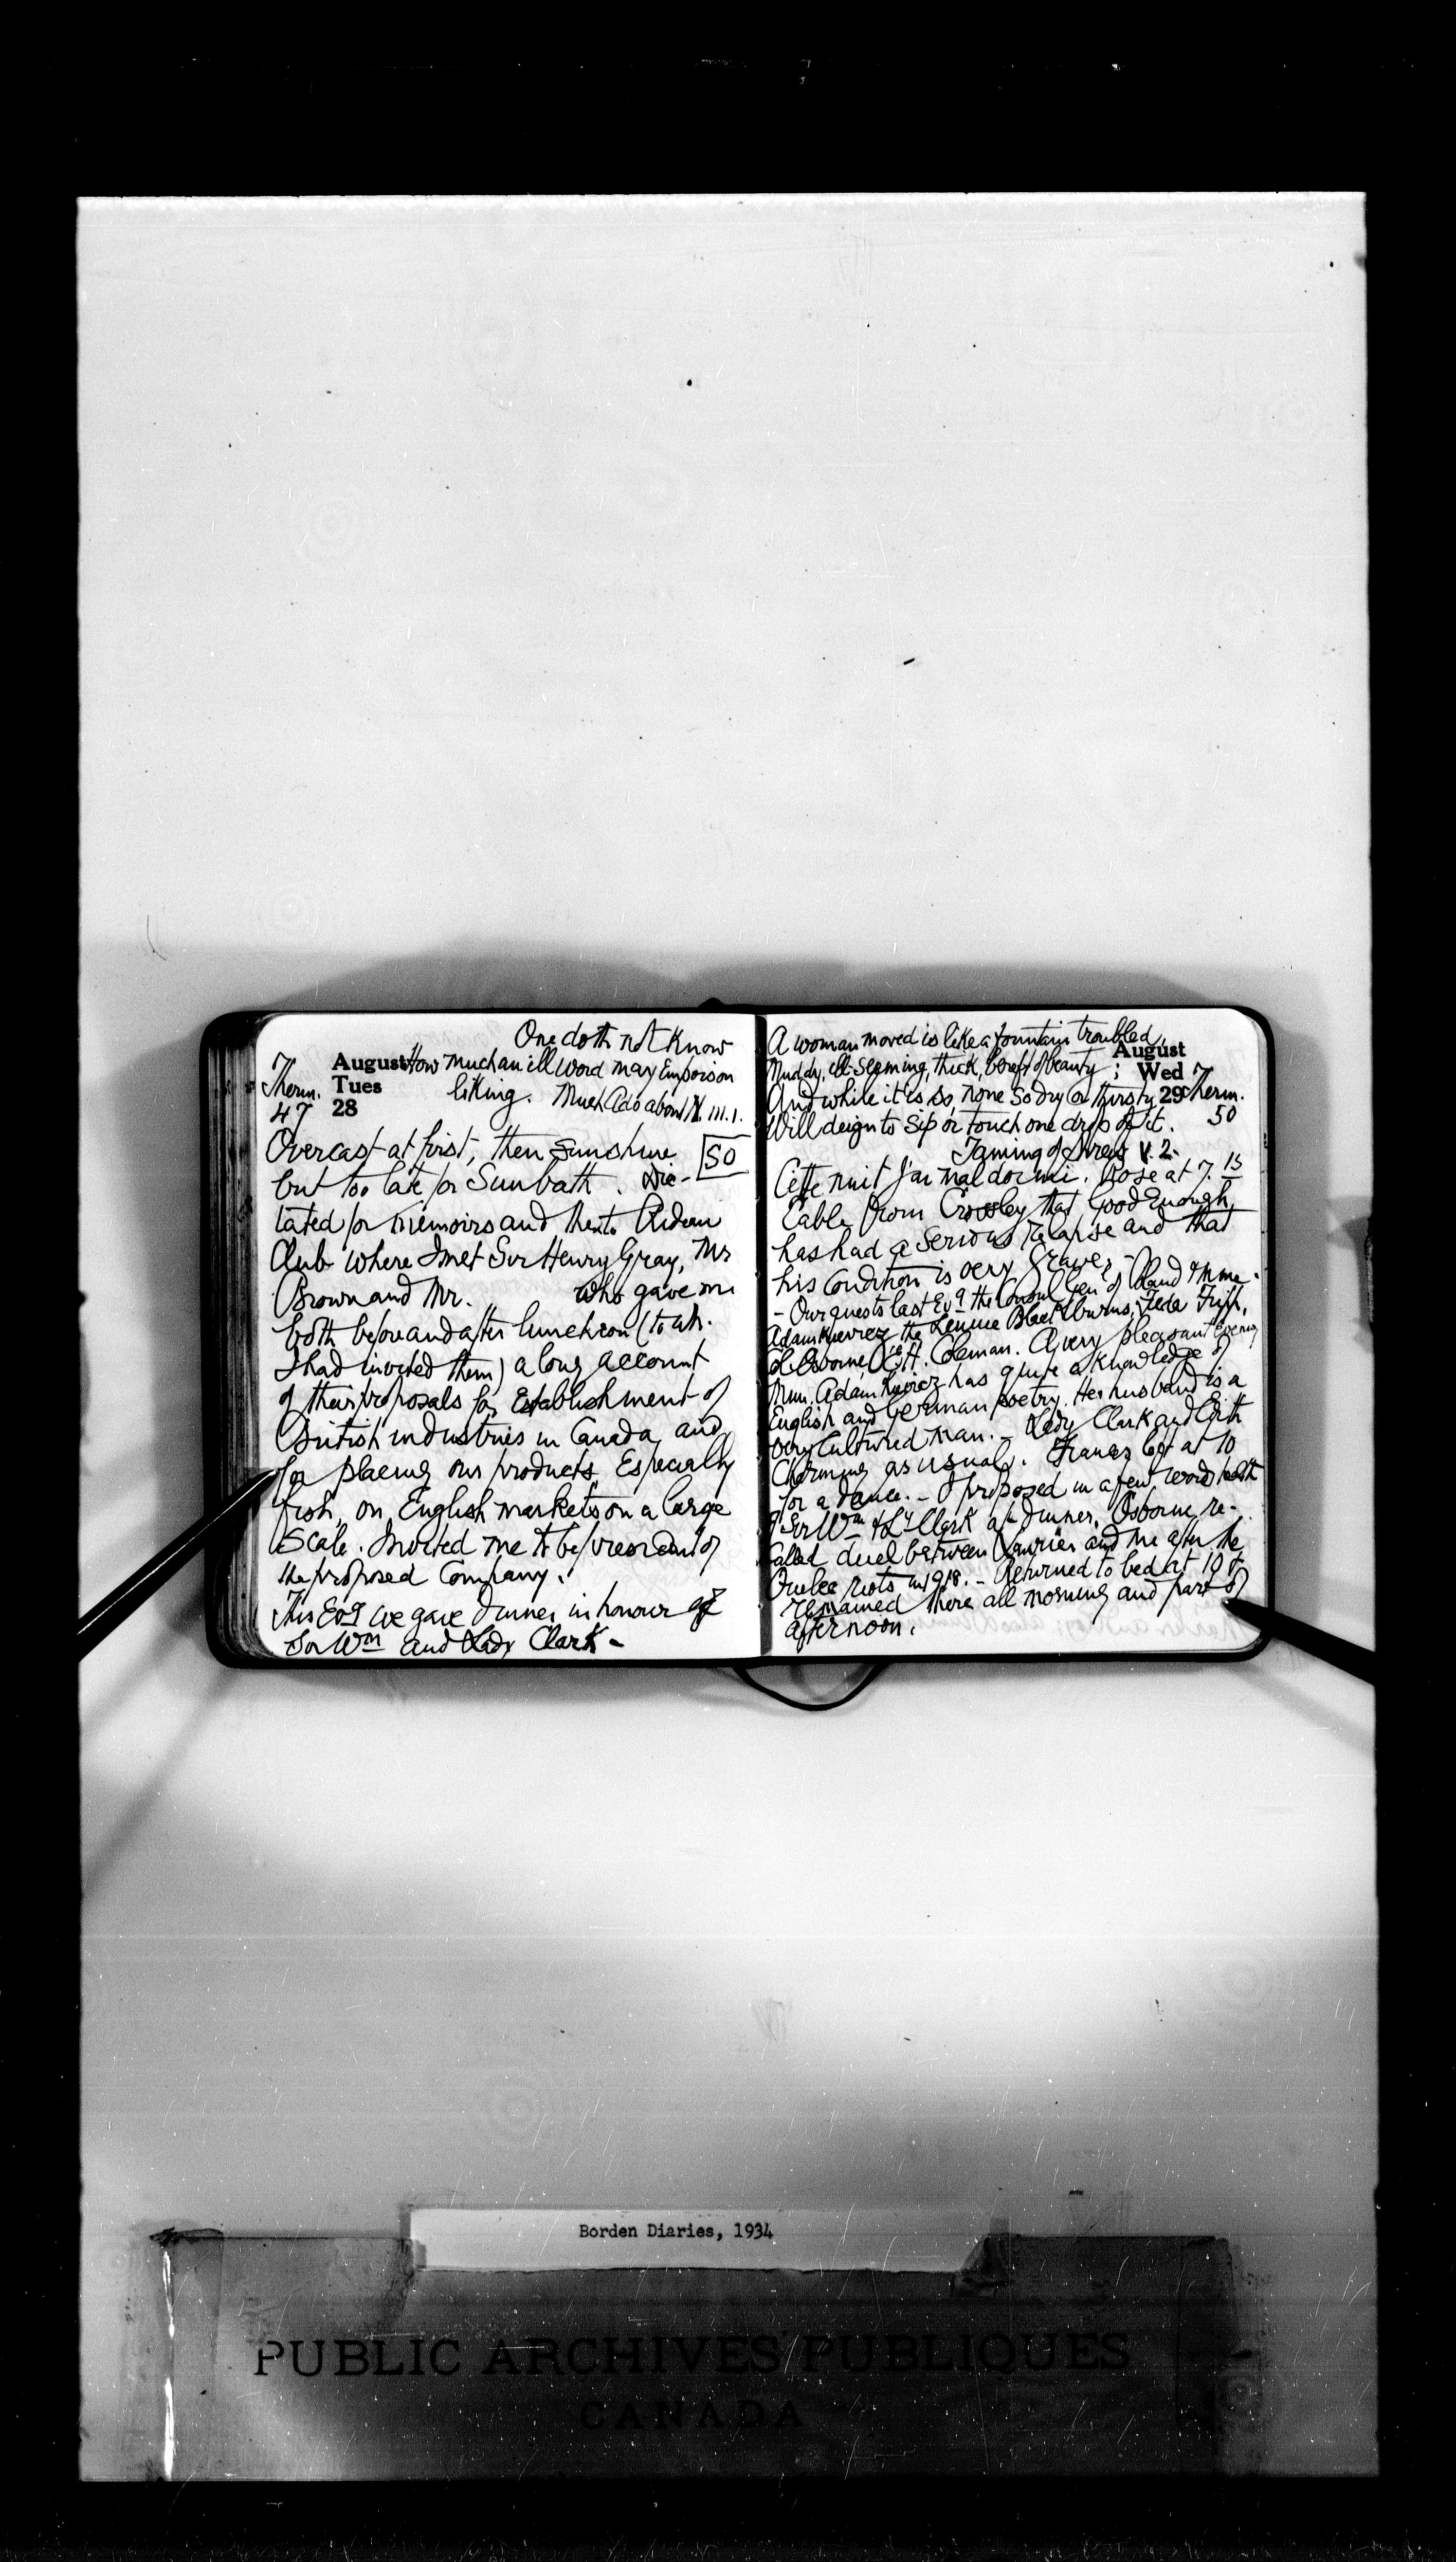 One doth not know
August How much an ill word may Empoison
liking. Much Ado about N. III.1.
7
Therm.
47
Tues
28
Overcast at first, then sunshine 50
but too late for Sunbath. Dic-
tated for memoirs and then to Rideau
Club where I met Sir Henry Gray, Mr
Brown and Mr. who gave me
both before and after luncheon (to wh.
I had invited them) a long account
of their proposals for Establishment of
British industries in Canada and
for placing our products, Especially
fish, on English markets on a large
Scale. Invited me to be president of
the proposed Company.
This Evg we gave dinner in honour of
Sir Wm and Lady Clark -
A woman moved is like a fountain troubled,
Muddy, ill-seeming, thick, bereft of beauty;
August
Wed
29
7
Therm.
50
And while it is so, none so dry or thirsty
Will deign to sip or touch one drop of it.
Taming of Shrew V.2.
Cette nuit j'ai mal dormi. Rose at 7.15
Cable from Crossley that Good Enough
has had a serious relapse and that
his condition is very grave. -
- Our guests last Evg the Consul Gen of Poland & Mme
Adamkiewicz the Blackburns,
Col Osborne, H. Coleman. A very pleasant Evening
Mme. Adamkiewicz has quite a knowledge of
English and German poetry. Her husband is a
very cultured man. - Lady Clark and
Charming as usual. Frances left at 10
for a dance. - I proposed in a few words health
of Sir Wm & Ly Clark at dinner. Osborne re-
called duel between Laurier and me after the
Quebec riots in 1918. - Returned to bed at 10 &
remained there all morning and part of
afternoon.
Borden Diaries, 1934
PUBLIC ARCHIVES PUBLIQUES
CANADA